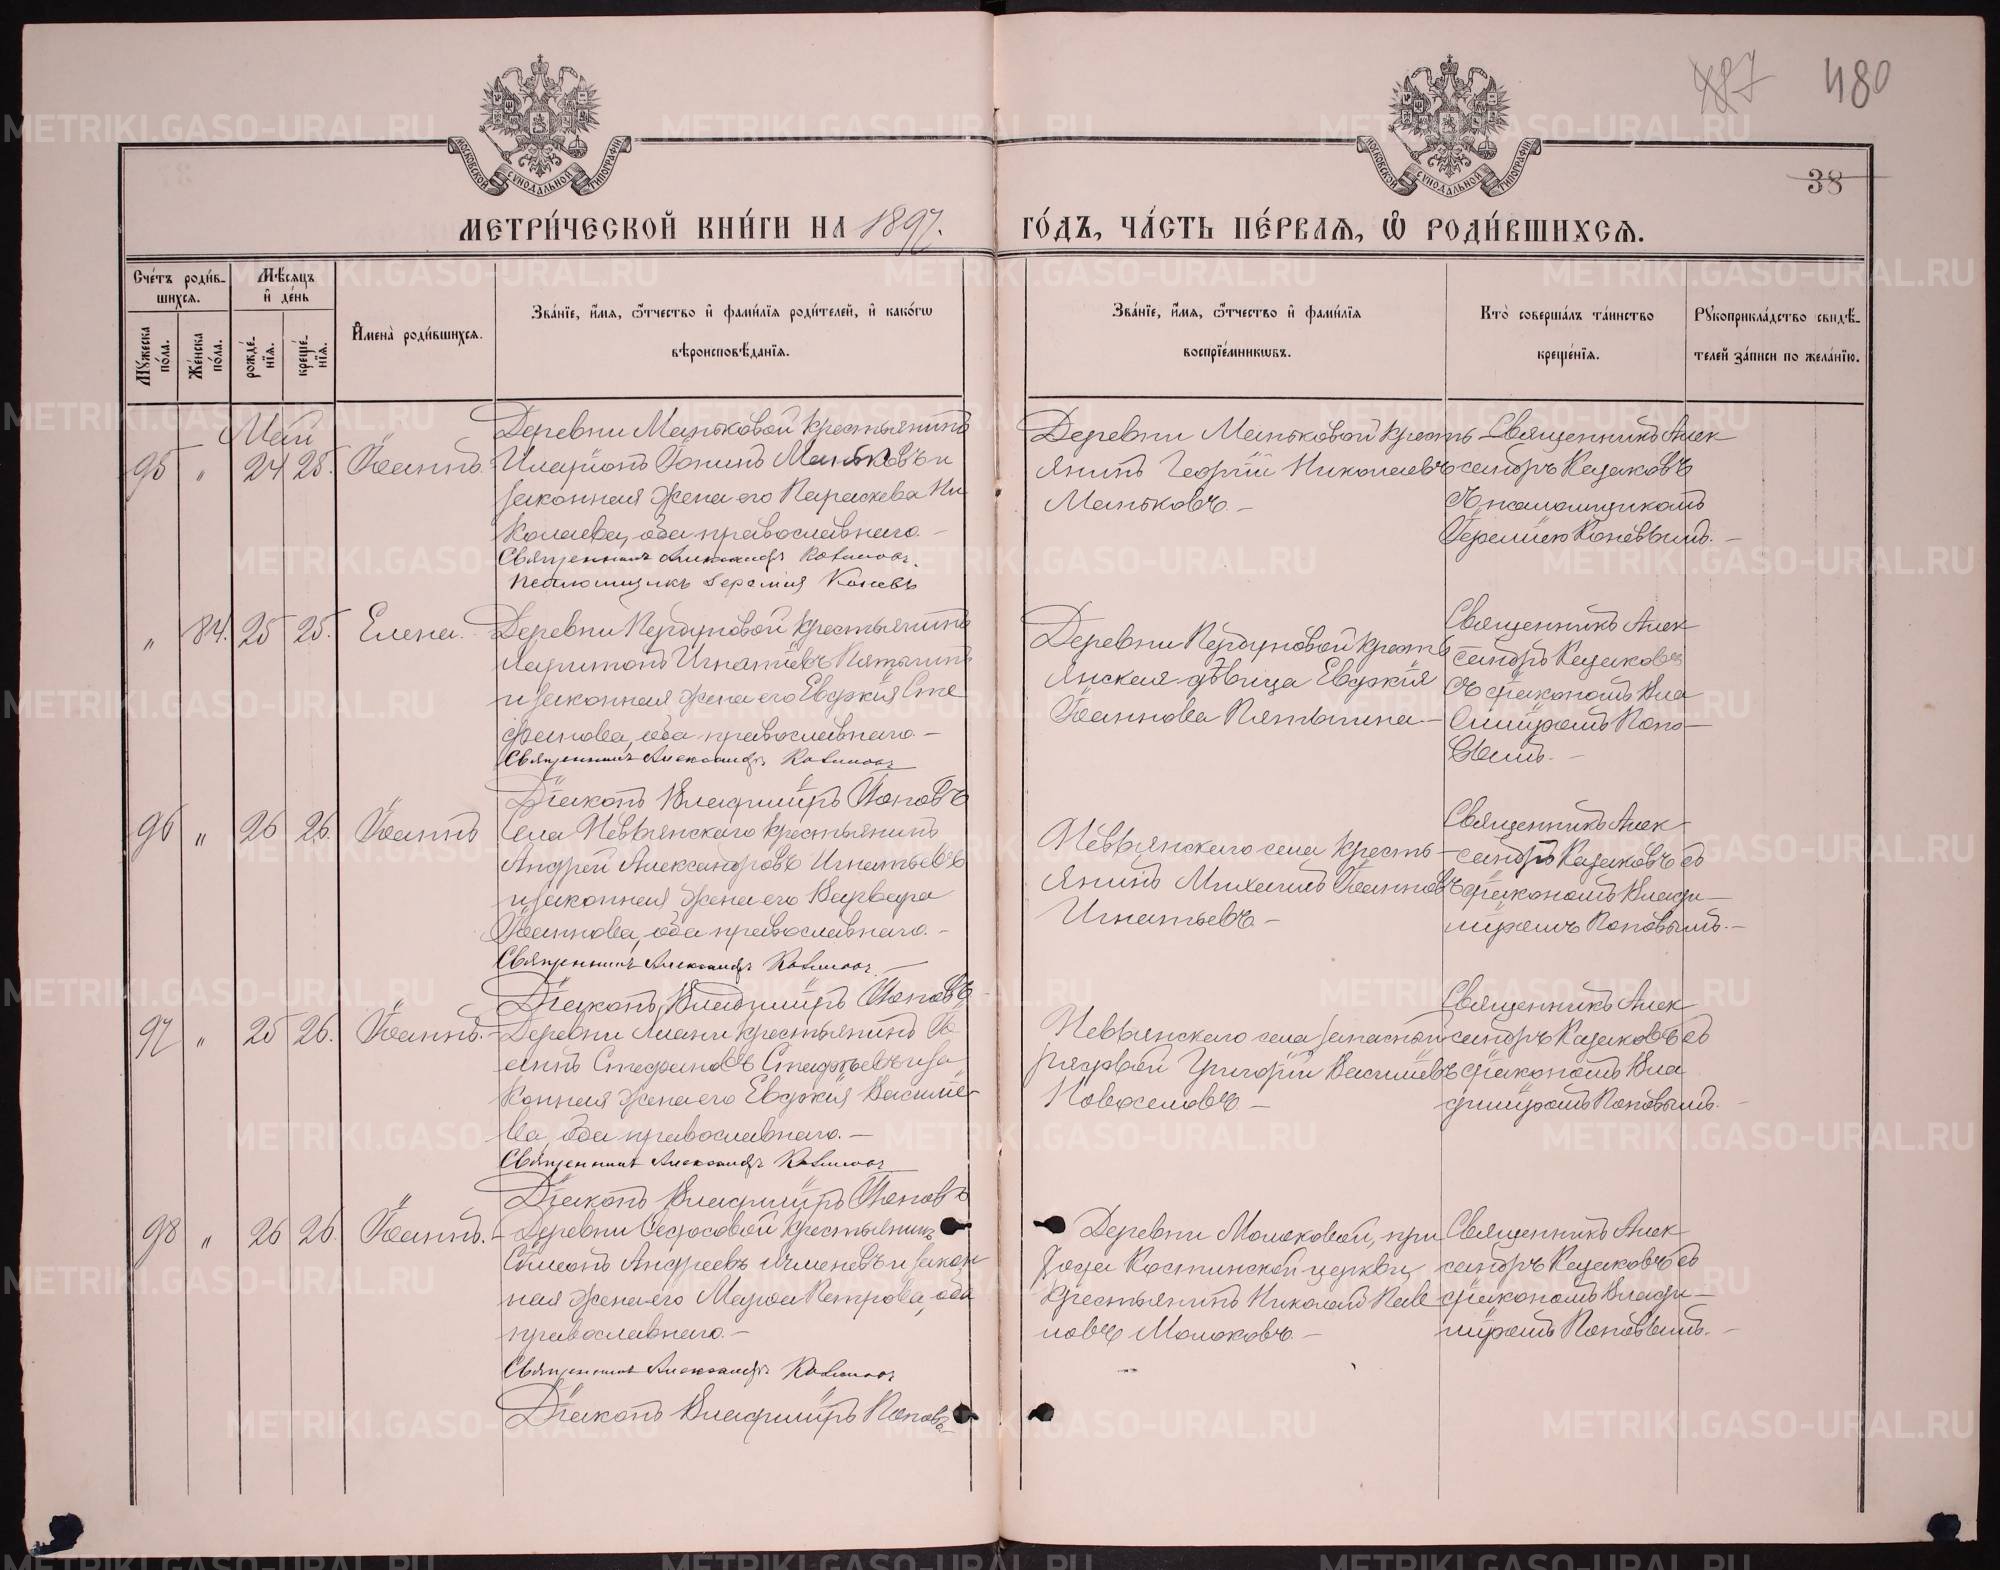 487 480
МОСКОВСКОЙ СѴНОДАЛЬНОЙ ТИПОГРАФІИ
МОСКОВСКОЙ СѴНОДАЛЬНОЙ ТИПОГРАФІИ
38
МЕТРИ́ЧЕСКОЙ КНИ́ГИ НА 1897. ГО́ДЪ, ЧА́СТЬ ПЕ́РВАѦ, Ѡ҆ РОДИ́ВШИХСѦ.
Сче́тъ роди́вшихсѧ.
Мꙋ́жеска по́ла.
Же́нска по́ла.
Мѣ́сѧцъ и҆ де́нь
рожде́нїѧ.
креще́нїѧ.
И҆мена̀ роди́вшихсѧ.
Зва́нїе, и҆́мѧ, ѻ҆́тчество и҆ фами́лїѧ роди́телей, и҆ како́гѡ
вѣроисповѣ́данїѧ.
Зва́нїе, и҆́мѧ, ѻ҆́тчество и҆ фами́лїѧ
воспрїе́мникѡвъ.
Кто̀ соверша́лъ та́инство
креще́нїѧ.
Рꙋкоприкла́дство свидѣ́-
телей за́писи по жела́нїю.
Май
95 " 24 25. Іоаннъ.
Деревни Маньковой крестьянинъ
Иларіонъ Іонинъ Маньковъ и
законная жена его Параскева Ни
колаева, оба православнаго.-
Священникъ Александръ Казаковъ.
Псаломщикъ Іеремія Коневъ
Деревни Маньковой кресть-
янинъ Георгій Николаевъ
Маньковъ.-
Священникъ Алек
сандръ Казаковъ
съ псаломщикомъ
Іереміею Коневымъ.-
" 84. 25 25. Елена.
Деревни Пердуновой крестьянинъ
Харитонъ Игнатіевъ Пятыгинъ
и законная жена его Евдокія Сте
фанова, оба православнаго.-
Священникъ Александръ Казаковъ
Діаконъ Владиміръ Поповъ
Деревни Пердуновой кресть
янская дѣвица Евдокія
Іоаннова Пятыгина.-
Священникъ Алек
сандръ Казаковъ
съ діакономъ Вла
диміромъ Попо-
вымъ.-
96 " 26 26. Іоаннъ
Села Невьянскаго крестьянинъ
Андрей Александровъ Игнатьевъ
и законная жена его Варвара
Іоаннова, оба православнаго.-
Священникъ Александръ Казаковъ
Діаконъ Владиміръ Поповъ
Невьянскаго села кресть-
янинъ Михаилъ Іоанновъ
Игнатьевъ-
Священникъ Алек
сандръ Казаковъ съ
діакономъ Влади-
міромъ Поповымъ.-
97 " 25 26. Іоаннъ.
Деревни крестьянинъ Іо
аннъ Стефановъ и за
конная жена его Евдокія Василіе-
ва, оба православнаго.-
Священникъ Александръ Казаковъ
Діаконъ Владиміръ Поповъ
Невьянскаго села запасной
рядовой Григорій Василіевъ
Новоселовъ-
Священникъ Алек
сандръ Казаковъ съ
діакономъ Вла
диміромъ Поповымъ.
98 " 26 26. Іоаннъ.
Деревни Федосовой крестьянинъ
Симеонъ Андреевъ Ячменевъ и закон
ная жена его Марѳа Петрова, оба
православнаго.-
Священникъ Александръ Казаковъ
Діаконъ Владиміръ Поповъ
Деревни Молоковой, при
хода Костинской церкви,
крестьянинъ Николай Пав
ловъ Молоковъ-
Священникъ Алек
сандръ Казаковъ съ
діакономъ Влади-
міромъ Поповымъ.-
METRIKI.GASO-URAL.RU